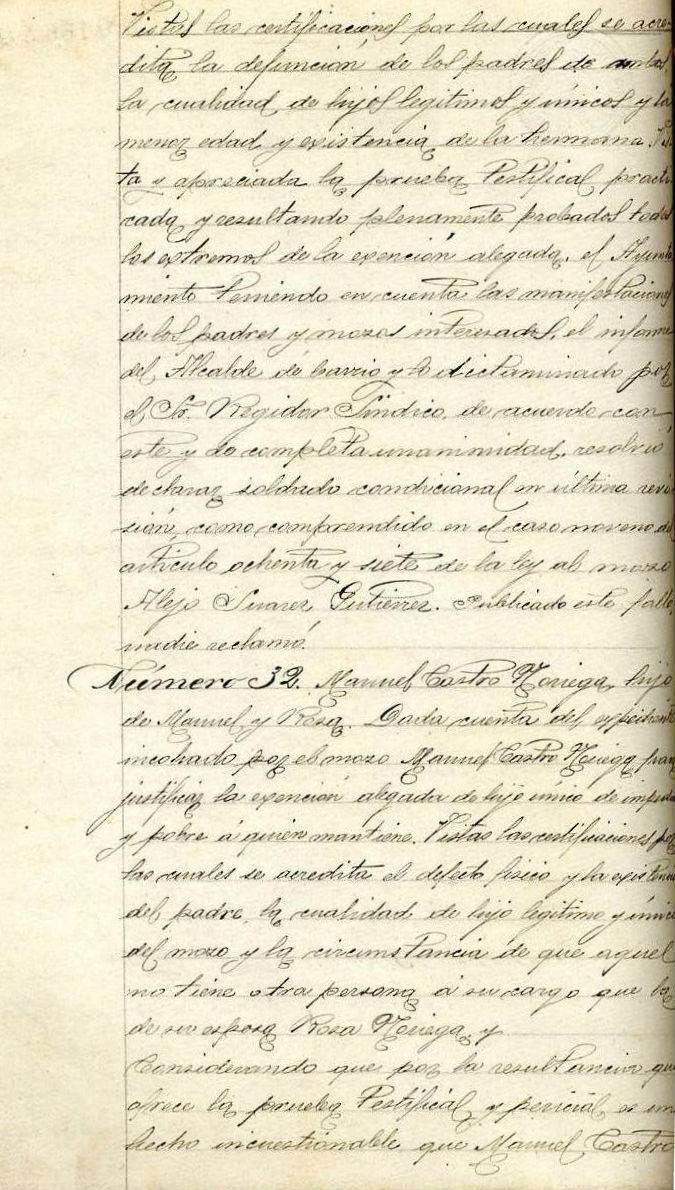 Vistas las certificaciones por las cuales se acre-
dita la defunción de los padres de ambos,
la cualidad de hijos legitimos y únicos y la
menor edad y existencia de la hermana. Vis
ta y apreciada la prueba testifical practi
cada y resultando plenamente probados todos
los extremos de la exención alegada, el Ayunta
miento teniendo en cuenta las manifestaciones
de los padres y mozos interesados, el informe
del Alcalde de barrio y lo dictaminado por
el Sr. Regidor Síndico, de acuerdo con
este y de completa unanimidad, resolvió
declarar soldado condicional en última revi
sión, como comprendido en el caso noveno del
artículo ochenta y siete de la ley al mozo
Alejo Suarez Gutierrez. Publicado este fallo,
nadie reclamó.
Número 32. Manuel Castro Noriega, hijo
de Manuel y Rosa. Dada cuenta del expediente
incohado por el mozo Manuel Castro Noriega para
justificar la exención alegada de hijo único de impedido
y pobre á quien mantiene. Vistas las certificaciones por
las cuales se acredita el defecto fisico y la existencia
del padre, la cualidad de hijo legitimo y único
del mozo y la circunstancia de que aquel
no tiene otra persona á su cargo que la
de su esposa Rosa Noriega, y
Considerando que por la resultancia que
ofrece la prueba testifical y pericial es un
hecho incuestionable que Manuel Castro